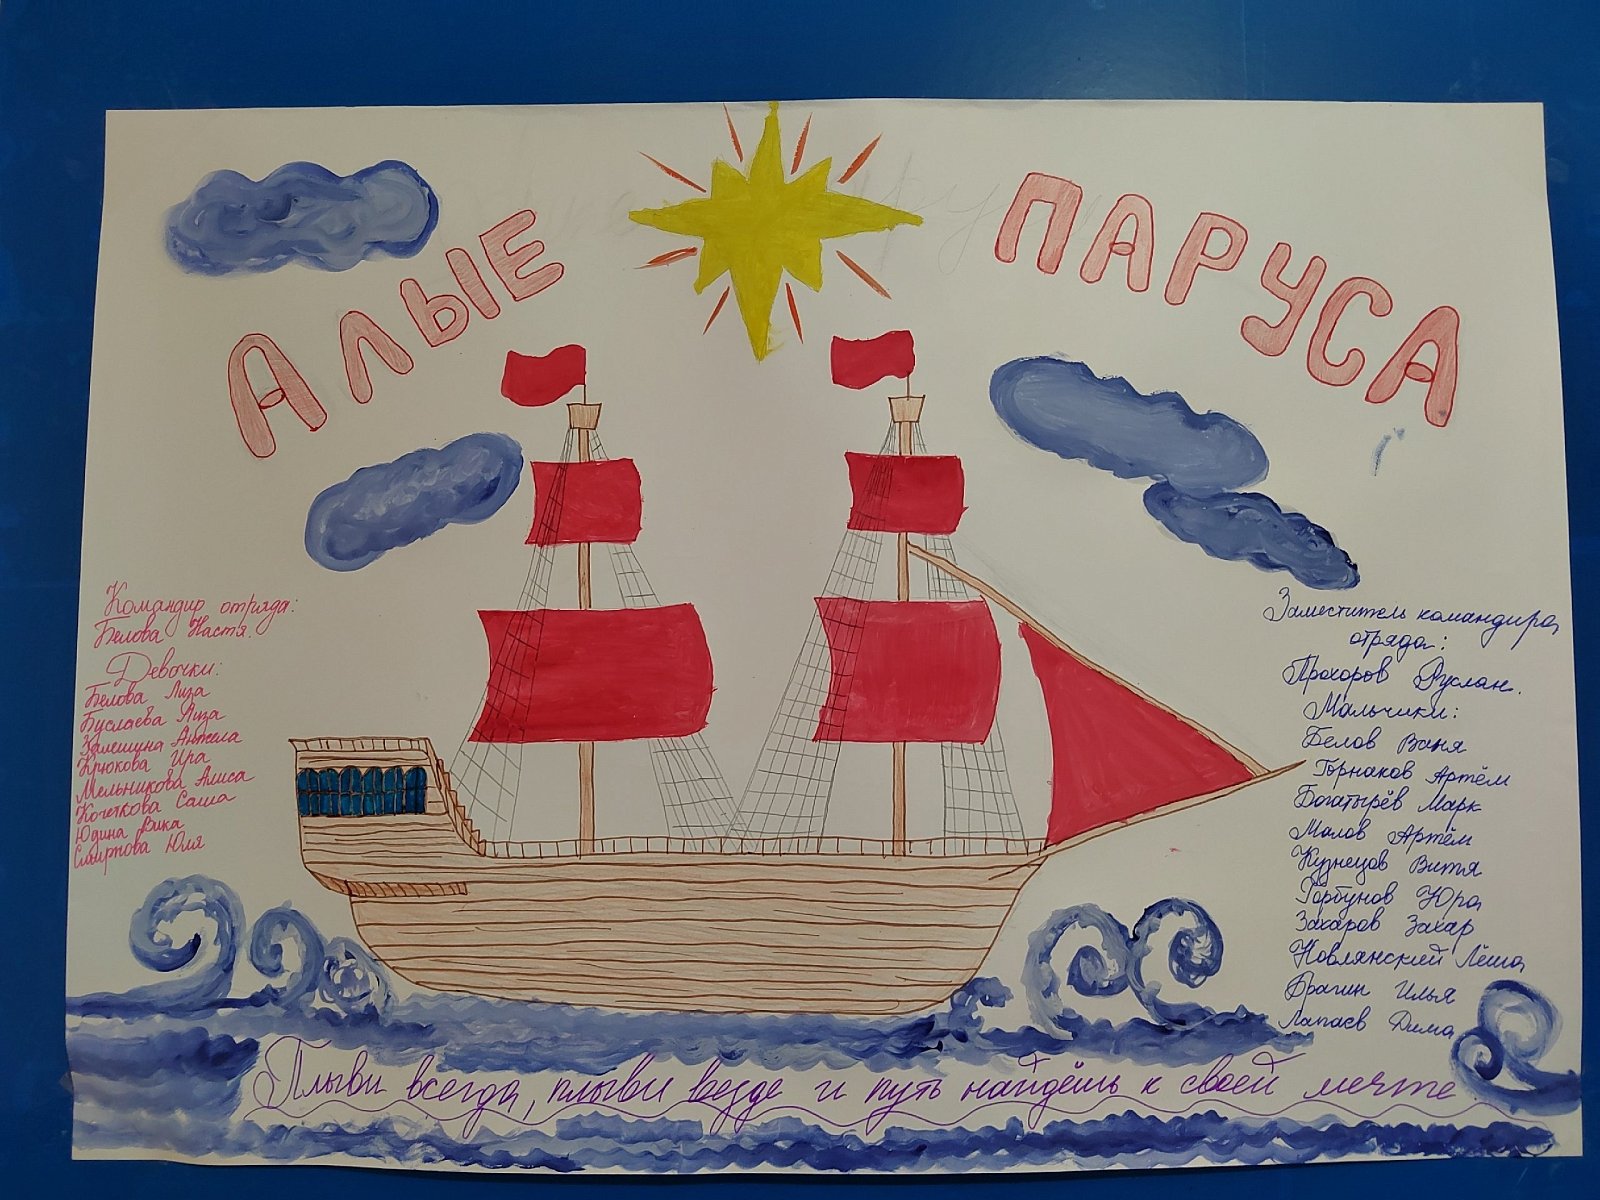 АЛЫЕ ПАРУСА
Командир отряда:
Белова Настя.
Девочки:
Белова Лиза
Буслаева Лиза
Анжела
Крюкова Ира
Мельникова Алиса
Кочеткова Саша
Юдина Вика
Смирнова Юля
Заместитель командира
отряда:
Прохоров Руслан.
Мальчики:
Белов Ваня
Горнаков Артём
Богатырёв Марк
Малов Артём
Кузнецов Витя
Горбунов Юра
Захаров Захар
Новлянский Лёша
Брагин Илья
Лапаев Дима
Плыви всегда, плыви везде и путь найдёшь к своей мечте